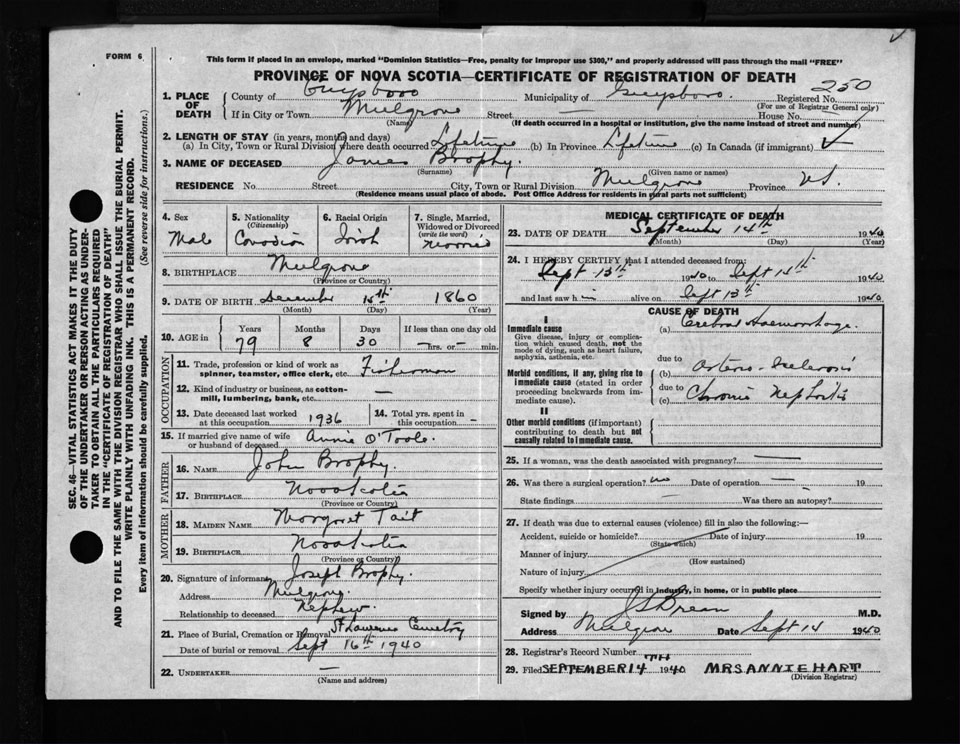 FORM 6
This form if placed in an envelope, marked "Dominion Statistics—Free, penalty for improper use $300," and properly addressed will pass through the mail "FREE"
PROVINCE OF NOVA SCOTIA—CERTIFICATE OF REGISTRATION OF DEATH
250
1. PLACE OF DEATH County of Guysboro Municipality of Guysboro. Registered No.
(For use of Registrar General only)
If in City or Town Mulgrave Street — House No.
(Name) (If death occurred in a hospital or institution, give the name instead of street and number)
2. LENGTH OF STAY (in years, months and days)
(a) In City, Town or Rural Division where death occurred Lifetime (b) In Province Lifetime (c) In Canada (if immigrant)
3. NAME OF DECEASED James Brophy.
(Surname) (Given name or names)
RESIDENCE No. Street City, Town or Rural Division Mulgrave Province N.S.
(Residence means usual place of abode. Post Office Address for residents in rural parts not sufficient)
4. Sex Male
5. Nationality (Citizenship) Canadian
6. Racial Origin Irish
7. Single, Married, Widowed or Divorced (write the word) Married
8. BIRTHPLACE Mulgrave
(Province or Country)
9. DATE OF BIRTH December 15th 1860
(Month) (Day) (Year)
10. AGE in Years Months Days If less than one day old
79 8 30 —hrs. or— min.
OCCUPATION
11. Trade, profession or kind of work as spinner, teamster, office clerk, etc. Fisherman
12. Kind of industry or business, as cotton-mill, lumbering, bank, etc. —
13. Date deceased last worked at this occupation 1936
14. Total yrs. spent in this occupation -
15. If married give name of wife or husband of deceased Annie O'Toole.
FATHER
16. NAME John Brophy.
17. BIRTHPLACE Nova Scotia
(Province or Country)
MOTHER
18. MAIDEN NAME Margaret Tait
19. BIRTHPLACE Nova Scotia
(Province or Country)
20. Signature of informant Joseph Brophy.
Address Mulgrave
Relationship to deceased Nephew.
21. Place of Burial, Cremation or Removal St Lawrence Cemetery
Date of burial or removal Sept 16th 1940
22. UNDERTAKER —
(Name and address)
MEDICAL CERTIFICATE OF DEATH
23. DATE OF DEATH September 14th 1940
(Month) (Day) (Year)
24. I HEREBY CERTIFY that I attended deceased from:
Sept 13th 1940 to Sept 14th 1940
and last saw him alive on Sept 13th 1940
CAUSE OF DEATH
I
Immediate cause
Give disease, injury or complication which caused death, not the mode of dying, such as heart failure, asphyxia, asthenia, etc.
(a) Cerebral Haemorrhage.
due to
Morbid conditions, if any, giving rise to immediate cause (stated in order proceeding backwards from immediate cause).
(b) Arterio-Sclerosis
due to
(c) Chronic Nephritis
II
Other morbid conditions (if important) contributing to death but not causally related to immediate cause.
25. If a woman, was the death associated with pregnancy? —
26. Was there a surgical operation? no Date of operation — 19
State findings — Was there an autopsy?
27. If death was due to external causes (violence) fill in also the following:—
Accident, suicide or homicide? Date of injury 19
(State which)
Manner of injury
(How sustained)
Nature of injury
Specify whether injury occurred in industry, in home, or in public place
Signed by M.D.
Address Mulgrave Date Sept 14 1940
28. Registrar's Record Number
29. Filed SEPTEMBER 14TH 1940 MRS ANNIE HART
(Division Registrar)
SEC. 46—VITAL STATISTICS ACT MAKES IT THE DUTY
OF THE UNDERTAKER OR PERSON ACTING AS UNDER-
TAKER TO OBTAIN ALL THE PARTICULARS REQUIRED
IN THE "CERTIFICATE OF REGISTRATION OF DEATH"
AND TO FILE THE SAME WITH THE DIVISION REGISTRAR WHO SHALL ISSUE THE BURIAL PERMIT.
WRITE PLAINLY WITH UNFADING INK. THIS IS A PERMANENT RECORD.
Every item of information should be carefully supplied. (See reverse side for instructions.)